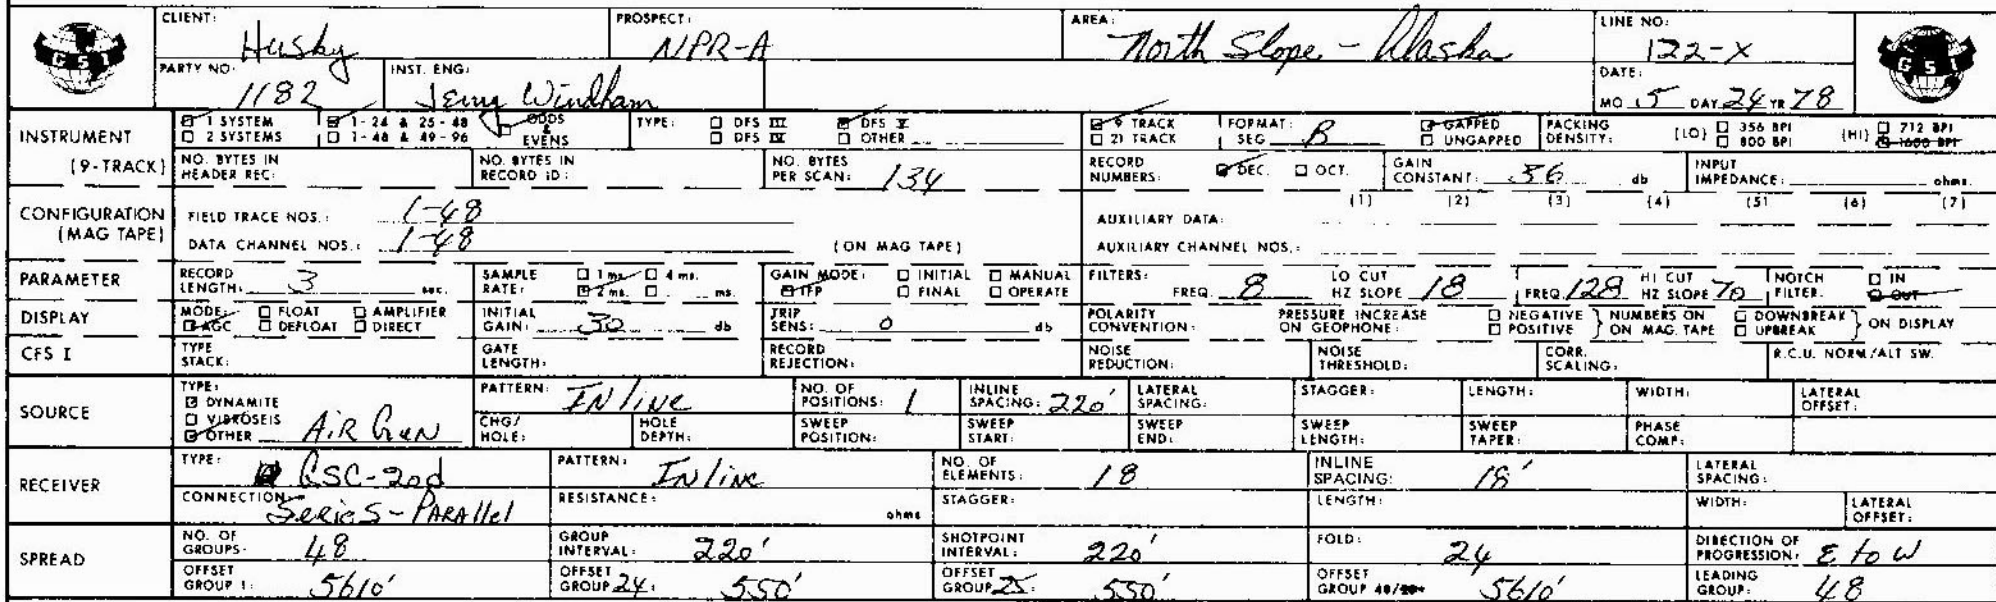 GSI
CLIENT: Husky PROSPECT: NPR-A AREA: North Slope - Alaska LINE NO: 122-X
GSI
PARTY NO: 1182 INST. ENG: Jerry Windham DATE: MO. 5 DAY 24 YR 78
INSTRUMENT 1 SYSTEM 1-24 & 25-48 ODDS & EVENS TYPE: DFS III DFS V 9 TRACK FORMAT: SEG B GAPPED PACKING DENSITY: (LO) 356 BPI (HI) 712 BPI
2 SYSTEMS 1-48 & 49-96 DFS IV OTHER 21 TRACK UNGAPPED 800 BPI 1600 BPI
(9-TRACK) NO. BYTES IN HEADER REC: NO. BYTES IN RECORD ID: NO. BYTES PER SCAN: 134 RECORD NUMBERS: DEC. OCT. GAIN CONSTANT: 36 db INPUT IMPEDANCE: ohms.
CONFIGURATION (MAG TAPE) FIELD TRACE NOS.: 1-48 AUXILIARY DATA: (1) (2) (3) (4) (5) (6) (7)
DATA CHANNEL NOS.: 1-48 (ON MAG TAPE) AUXILIARY CHANNEL NOS.:
PARAMETER RECORD LENGTH: 3 sec. SAMPLE RATE: 1 ms. 4 ms. 2 ms. ms. GAIN MODE: INITIAL MANUAL IFP FINAL OPERATE FILTERS: FREQ. 8 LO CUT HZ SLOPE 18 FREQ. 128 HI CUT HZ SLOPE 70 NOTCH FILTER. IN OUT
DISPLAY MODE: FLOAT AMPLIFIER AGC DEFLOAT DIRECT INITIAL GAIN: 30 db TRIP SENS: 0 db POLARITY CONVENTION: PRESSURE INCREASE ON GEOPHONE: NEGATIVE POSITIVE } NUMBERS ON MAG. TAPE DOWNBREAK UPBREAK } ON DISPLAY
CFS I TYPE STACK: GATE LENGTH: RECORD REJECTION: NOISE REDUCTION: NOISE THRESHOLD: CORR. SCALING: R.C.U. NORM/ALT SW.
SOURCE TYPE: DYNAMITE VIBROSEIS OTHER AiR GuN PATTERN: INline NO. OF POSITIONS: 1 INLINE SPACING: 220' LATERAL SPACING: STAGGER: LENGTH: WIDTH: LATERAL OFFSET:
CHG/HOLE: HOLE DEPTH: SWEEP POSITION: SWEEP START: SWEEP END: SWEEP LENGTH: SWEEP TAPER: PHASE COMP:
RECEIVER TYPE: GSC-20d PATTERN: INline NO. OF ELEMENTS: 18 INLINE SPACING: 18' LATERAL SPACING:
CONNECTION: SerieS-PARAllel RESISTANCE: ohms STAGGER: LENGTH: WIDTH: LATERAL OFFSET:
SPREAD NO. OF GROUPS: 48 GROUP INTERVAL: 220' SHOTPOINT INTERVAL: 220' FOLD: 24 DIRECTION OF PROGRESSION: E to W
OFFSET GROUP 1: 5610' OFFSET GROUP 24: 550' OFFSET GROUP 25: 550' OFFSET GROUP 48/ 5610' LEADING GROUP: 48